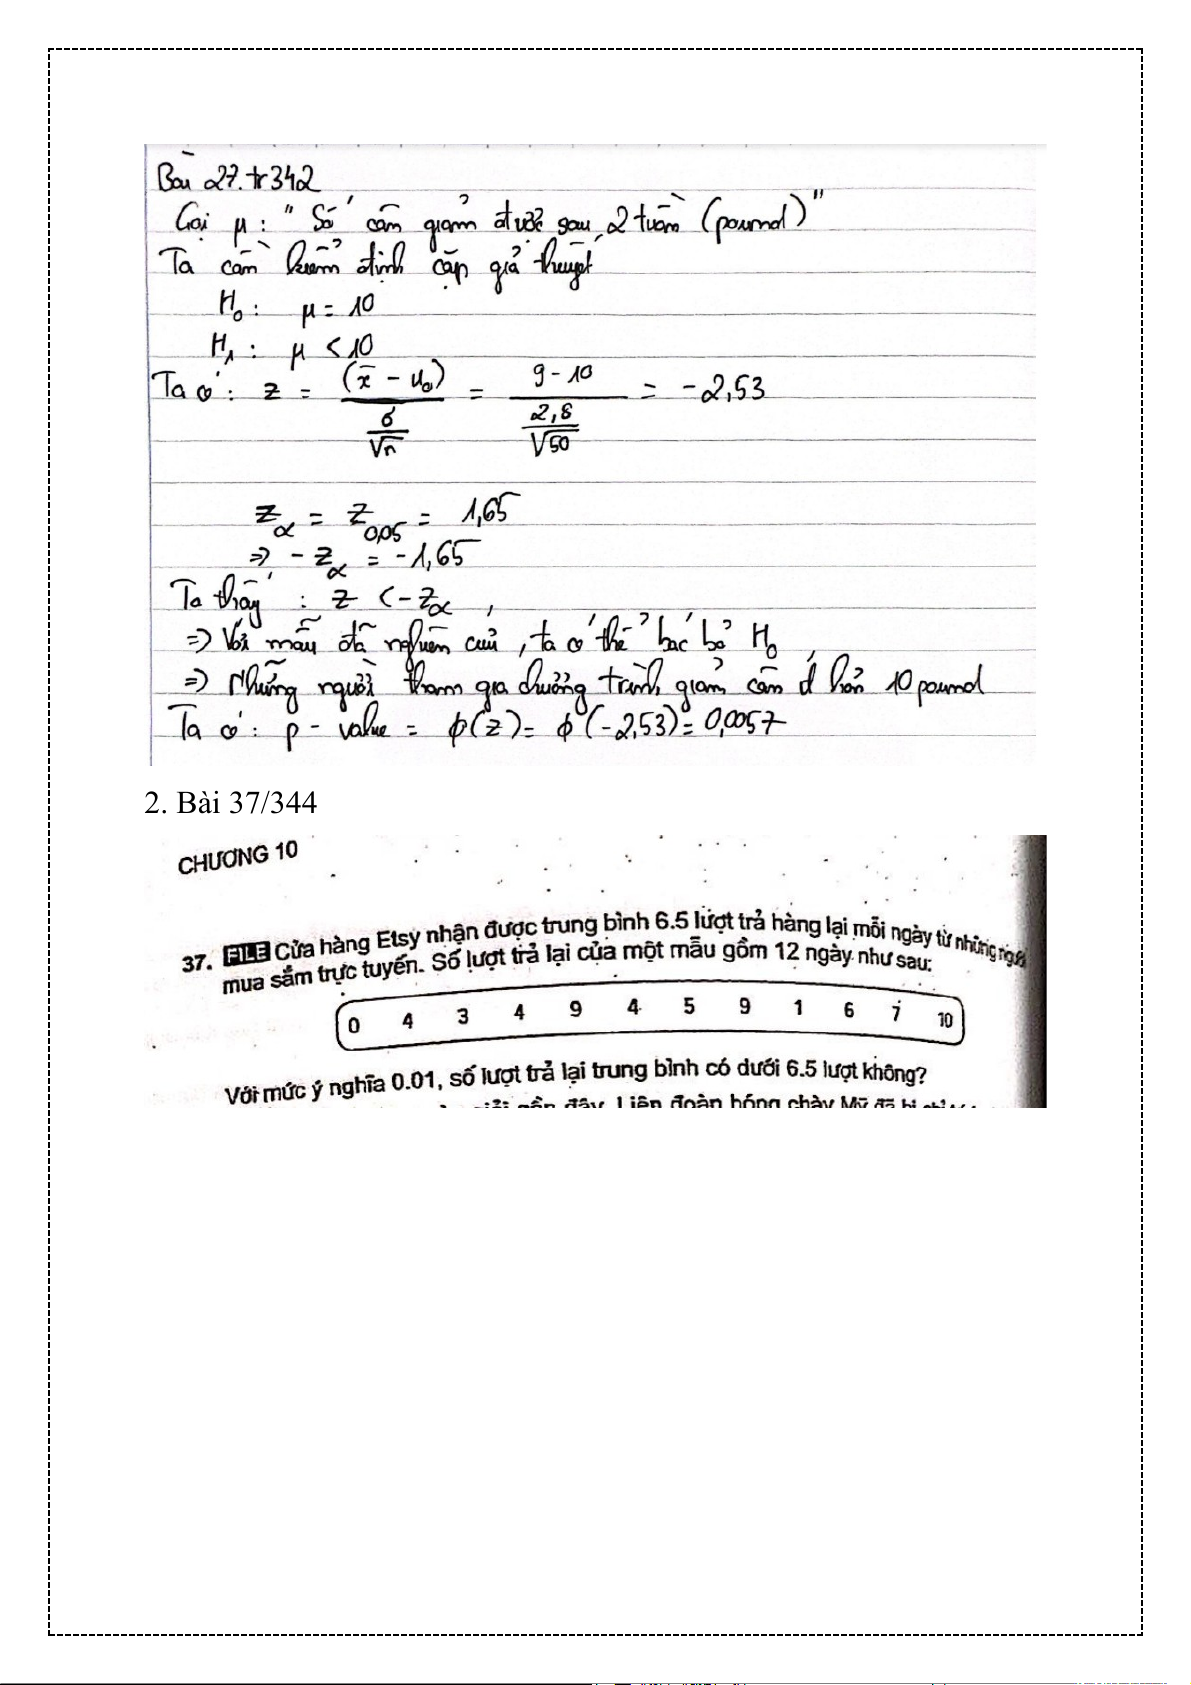 Bài 27.tr342
Gọi μ : " Số cân giảm được sau 2 tuần (pound) "
Ta cần kiểm định cặp giả thuyết
H₀ : μ = 10
H₁ : μ < 10
Ta có : z = (x̄ - u₀) / (σ/√n) = (9 - 10) / (2,8/√50) = -2,53
z_α = z_0,05 = 1,65
=> - z_α = -1,65
Ta thấy : z < -z_α ,
=> Với mẫu đã nghiên cứu , ta có thể bác bỏ H₀ ,
=> Những người tham gia chương trình giảm cân ít hơn 10 pound
Ta có : p - value = ϕ(z) = ϕ(-2,53) = 0,0057
2. Bài 37/344
CHƯƠNG 10
37. FILE Cửa hàng Etsy nhận được trung bình 6.5 lượt trả hàng lại mỗi ngày từ những người
mua sắm trực tuyến. Số lượt trả lại của một mẫu gồm 12 ngày như sau:
0 4 3 4 9 4 5 9 1 6 7 10
Với mức ý nghĩa 0.01, số lượt trả lại trung bình có dưới 6.5 lượt không?
gần đây, Liên đoàn bóng chày Mỹ đã bị